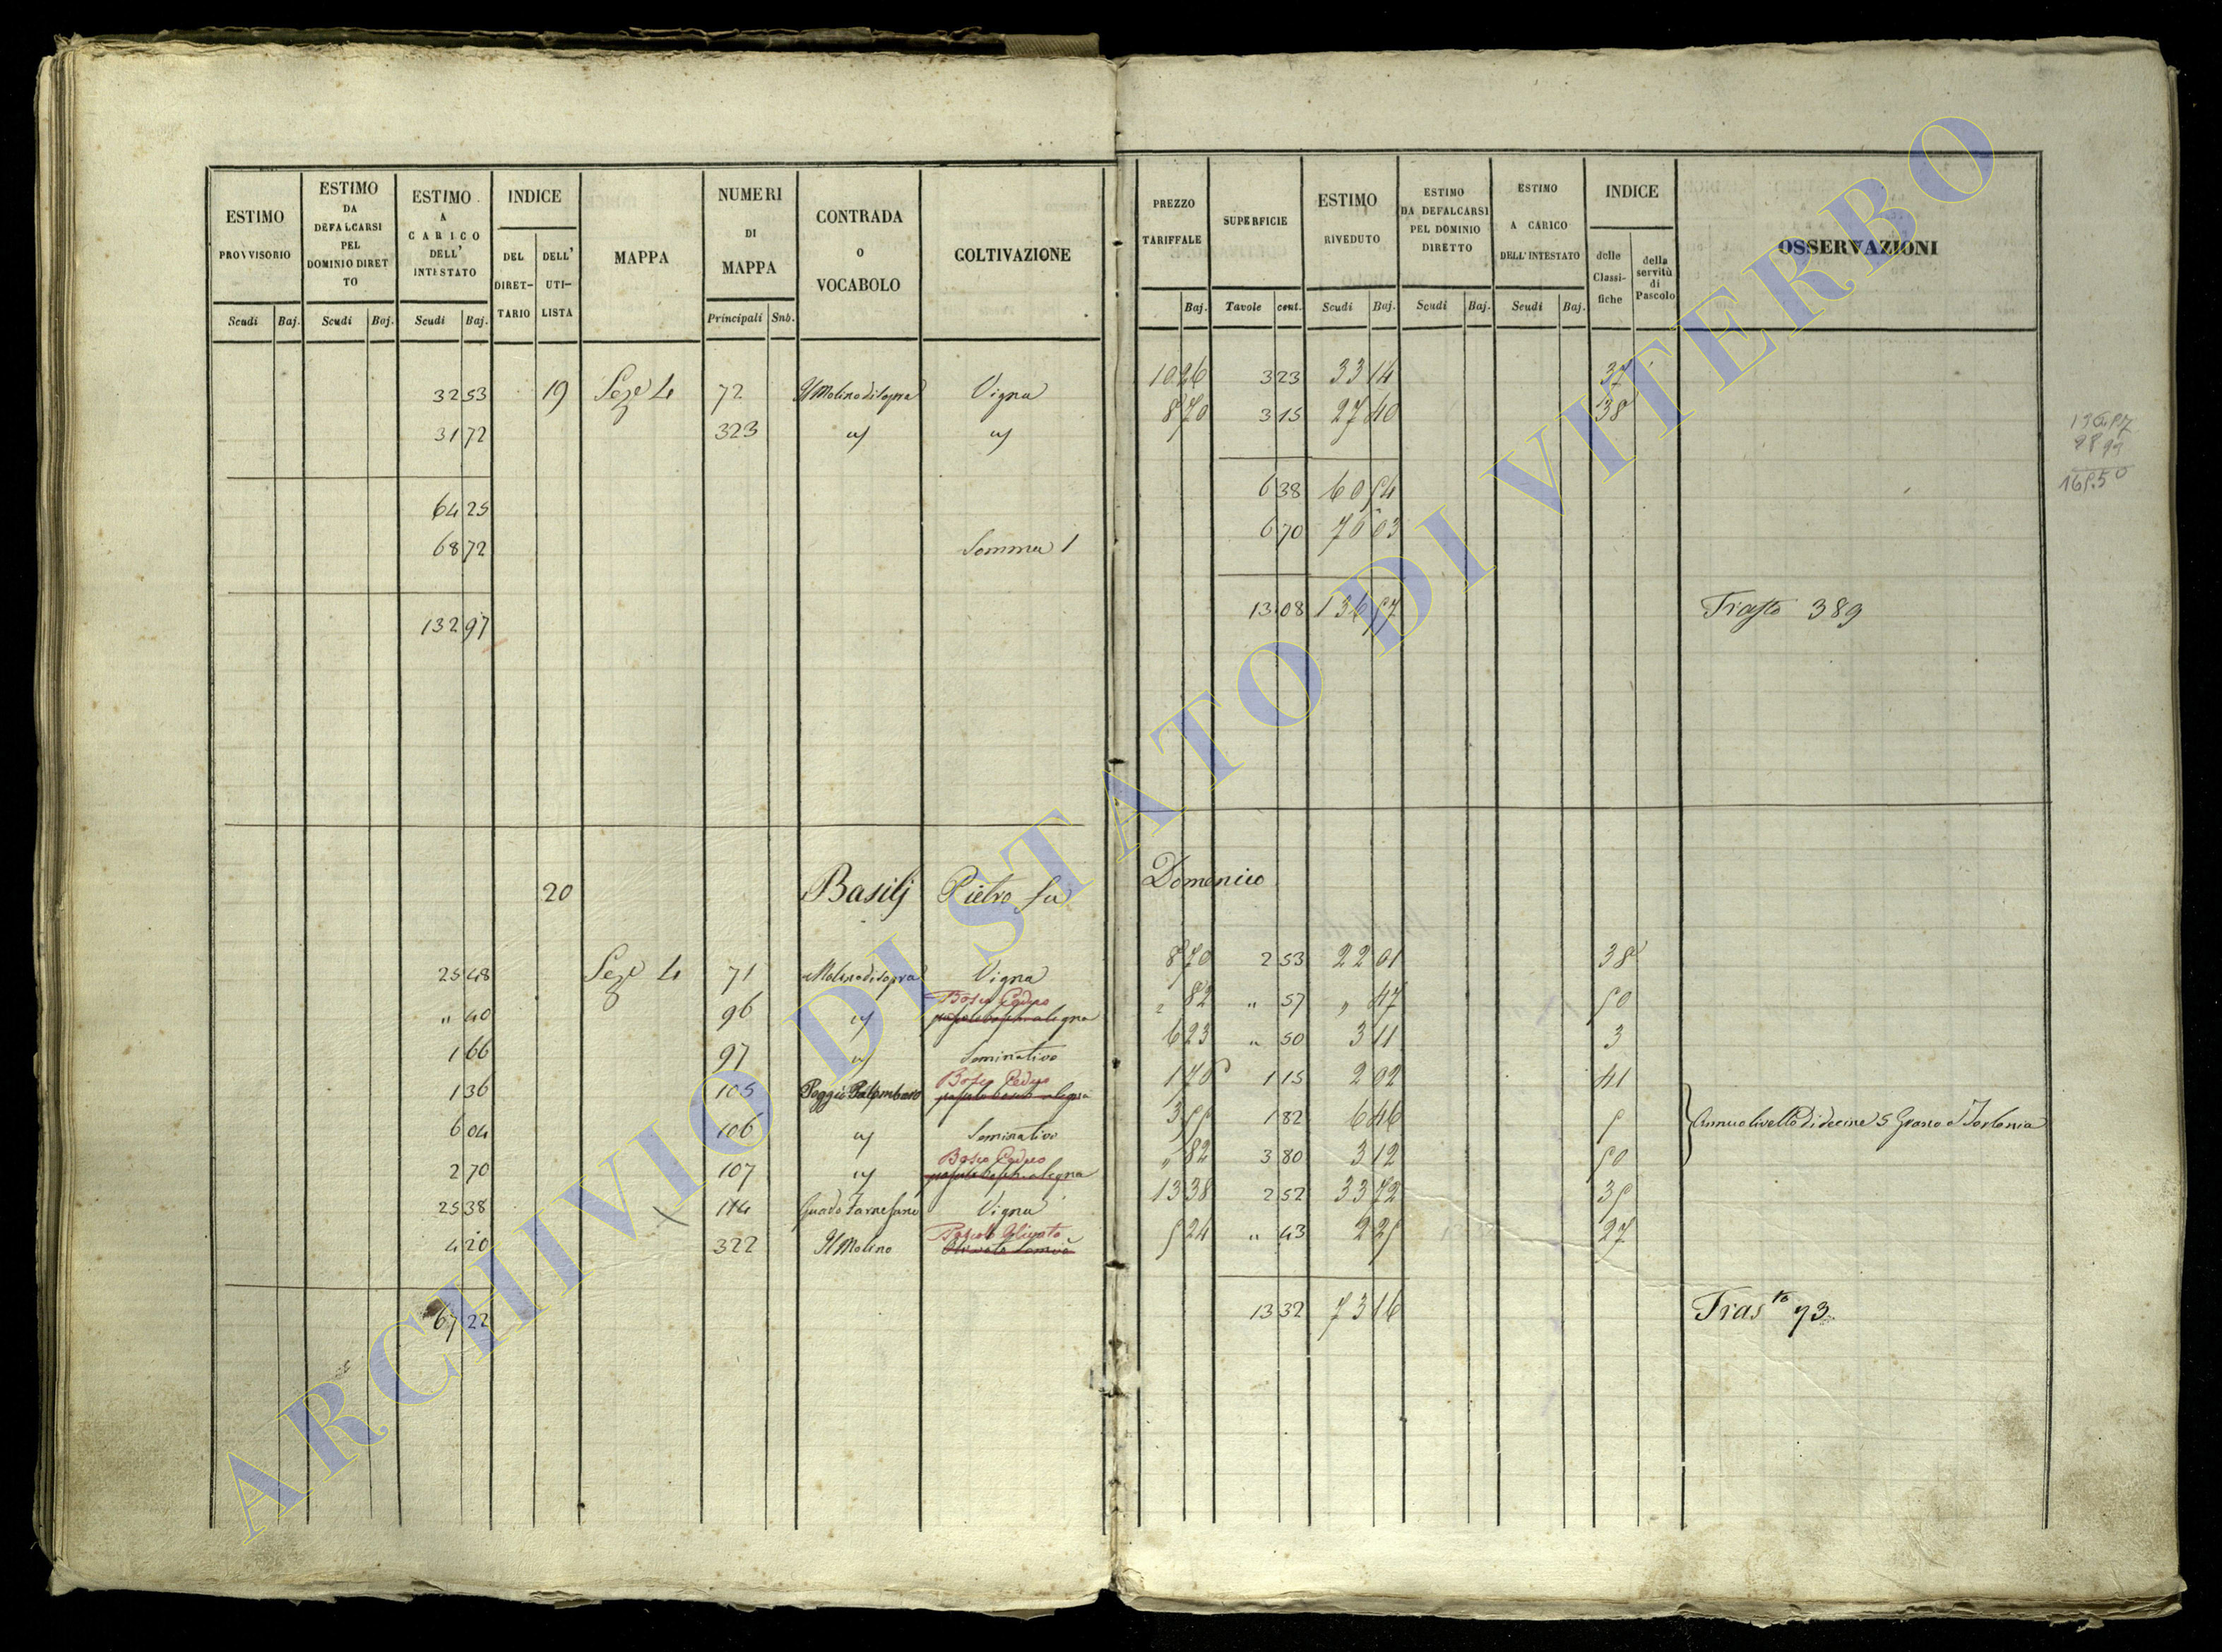 ESTIMO PROVVISORIO Scudi Baj.
ESTIMO DA DEFALCARSI PEL DOMINIO DIRETTO Scudi Baj.
ESTIMO A CARICO DELL' INTESTATO Scudi Baj.
INDICE DEL DIRET-TARIO DELL' UTI-LISTA
MAPPA
NUMERI DI MAPPA Principali Sub.
CONTRADA o VOCABOLO
COLTIVAZIONE
PREZZO TARIFFALE Baj.
SUPERFICIE Tavole cent.
ESTIMO RIVEDUTO Scudi Baj.
ESTIMO DA DEFALCARSI PEL DOMINIO DIRETTO Scudi Baj.
ESTIMO A CARICO DELL' INTESTATO Scudi Baj.
INDICE delle Classi-fiche della servitù di Pascolo
OSSERVAZIONI
32 53 19 Seze 4 72 Il Molino di sopra Vigna 10 26 3 23 33 14 37
31 72 323 " " 8 70 3 15 27 40 38
64 25 6 38 60 54
68 72 Somma 1 6 70 76 03
132 97 13 08 136 57 Trasto 389
28 93
165.50
20 Basilj Pietro fu Domenico
25 48 Seze 4 71 Molino di sopra Vigna 8 70 2 53 22 01 38
" 40 96 " Bosco Ceduo " 82 " 57 " 47 50
1 66 97 " Seminativo 6 23 " 50 3 11 3
1 36 105 Poggio Palombaro Bosco Ceduo 1 76 1 15 2 02 41
6 04 106 " Seminativo 3 55 1 82 6 46 5 Annuo livello di decine 5 Grano a Torlonia
2 70 107 " Bosco Ceduo " 82 3 80 3 12 50
25 38 114 Guado Farnesano Vigna 13 38 2 52 33 72 35
4 20 322 Il Molino Pascolo Olivato 5 24 " 43 2 25 27
67 22 13 32 73 16 Trasto 73
ARCHIVIO DI STATO DI VITERBO